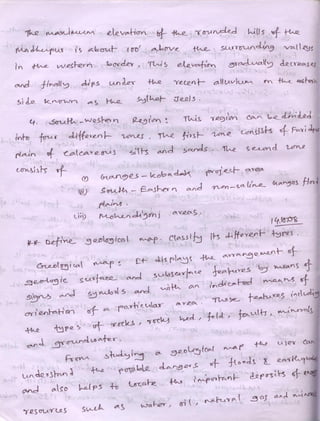 The maximum elevation of the rounded hills of the
Madhupus is about 100' above the surrounding valleys
in the western border. This elevation gradually decreases
and finally dips under the recent alluvium on the eastern
side known as the Sylhet Jeels.
4. South-western Region: This region can be divided
into four different zones. The first zone consists of Faridpur
plain of calcareous silts and sands. The second zone
consists of
i) Ganges-kobadak project area
ii) South-Eashern and non-saline Ganges flood
plains.
iii) Mohendiganj areas.
** Define geological map. Classify its different types.
Geological map: It displays the arrangement of
geologic surface and subsurface features by means of
signs and symbols and with an indicated means of
orientation of a particular area. These features including
the types of rocks, rocks bed, fold, faults, minerals
and groundwater.
From studying a geological map the user can
understand the possible dangers of floods & earthquake
and also helps to locate the important deposits of
resources such as water, oil, natural gas and mineral